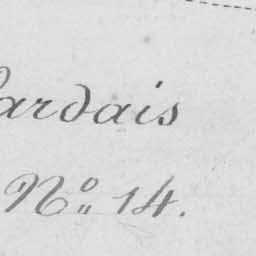 ardais
Nº 14.